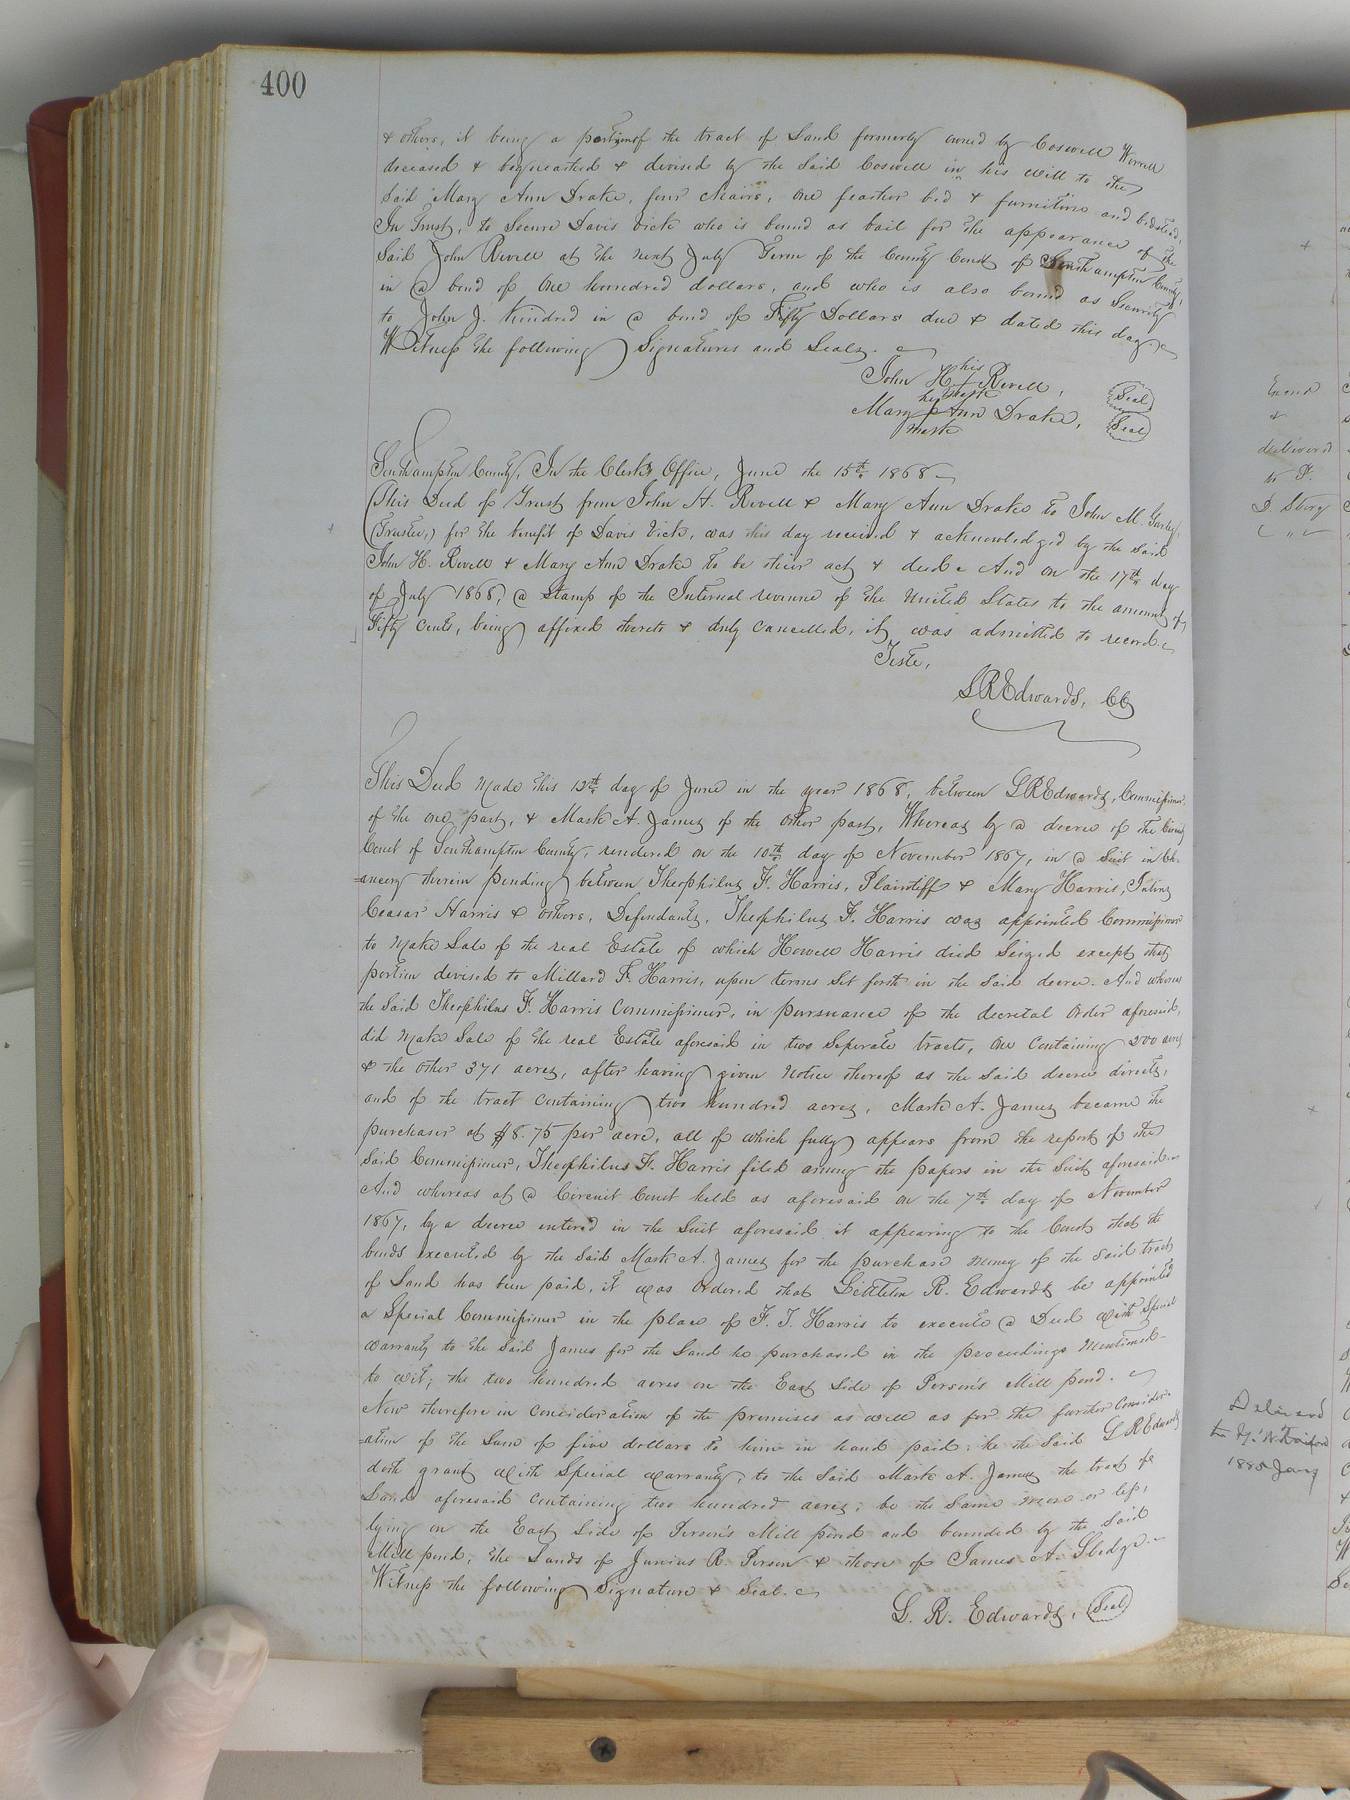 400
& others, it being a portion of the tract of Land formerly owned by Coswell Worrell
deceased & bequeathed & devised by the Said Coswell in his will to the
Said Mary Ann Drake, four Chairs, one feather bed & furniture and bedstead,
In Trust, to Secure Davis Vick who is bound as bail for the appearance of the
Said John Revell at the next July Term of the County Court of Southampton County,
in a bond of One hundred dollars, and who is also bound as Security
to John J. Kindred in a bond of Fifty Dollars due & dated this day.
Witness the following Signatures and Seals.
his
John H + Revell, Seal
mark
her
Mary + Ann Drake, Seal
mark
Southampton County, In the Clerk's Office, June the 15th. 1868
This Deed of Trust from John H. Revell & Mary Ann Drake to John M.
(Trustee,) for the benefit of Davis Vick, was this day received & acknowledged by the said
John H. Revell & Mary Ann Drake to be their act & deed. And on the 17th day
of July 1868, a Stamp of the Internal revenue of the United States to the amount of
Fifty cents, being affixed thereto & duly cancelled, it was admitted to record.
Teste,
L R Edwards, CC
This Deed Made this 12th. day of June in the year 1868, between L R Edwards, Commissioner
of the one part, & Mark A. James of the other part, Whereas by a decree of the
Court of Southampton County, rendered on the 10th. day of November 1867, in a Suit in Ch-
=ancery therein pending between Theophilus F. Harris, Plaintiff & Mary Harris,
Ceasar Harris & others, Defendants, Theophilus F. Harris was appointed Commissioner
to Make Sale of the real Estate of which Howell Harris died Seized except that
portion devised to Millard F. Harris, upon terms Set forth in the Said decree. And whereas
the Said Theophilus F. Harris Commissioner, in pursuance of the decretal order aforesaid,
did Make Sale of the real Estate aforesaid in two Seperate tracts, one Containing 200 acres
& the other 371 acres, after having given Notice thereof as the Said decree directs,
and of the tract Containing two hundred acres, Mark A. James became the
purchaser at $8.75 per acre, all of which fully appears from the report of the
Said Commissioner, Theophilus F. Harris filed among the papers in the Suit aforesaid
And whereas at a Circuit Court held as aforesaid on the 7th. day of November
1867, by a decree entered in the Suit aforesaid it appearing to the Court that the
bonds executed by the Said Mark A. James for the purchase money of the Said tract
of Land has been paid, it was Ordered that Littleton R. Edwards be appointed
a Special Commissioner in the place of F. T. Harris to execute a Deed with Special
warranty to the Said James for the Land he purchased in the proceedings Mentioned
to wit; the two hundred acres on the East Side of Person's Mill pond.
Now therefore in Consideration of the premises as well as for the further Consider-
=ation of the Sum of five dollars to him in hand paid, he the Said L R Edwards
doth grant with Special warranty, to the Said Mark A. James the tract of
Land aforesaid Containing two hundred acres; be the Same more or less,
lying on the East Side of Person's Mill pond and bounded by the Said
Mill pond, the Lands of Junius R. Person & those of James A. Sledge.
Witness the following Signature & Seal.
L. R. Edwards, Seal
&
delivered
to
Delivered
to